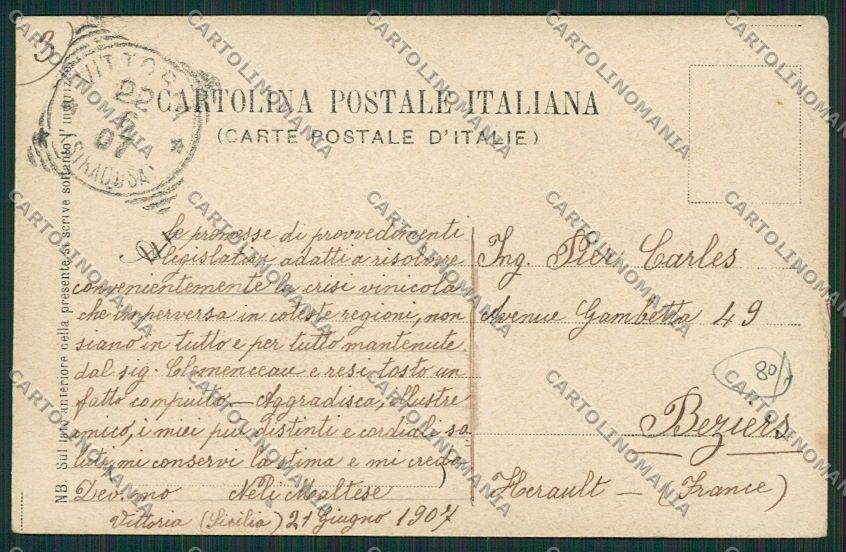 3
VITTORIA
22
6
07
(SIRACUSA)
CARTOLINA POSTALE ITALIANA
(CARTE POSTALE D'ITALIE)
NB. Sul lato anteriore della presente si scrive soltanto l'indirizzo
le promesse di provvedimenti
legislativi adatti a risolvere
convenientemente la crisi vinicola
che imperversa in coteste regioni, non
siano in tutto e per tutto mantenute
dal sig. Clemenceau e resi tosto un
fatto compiuto — Aggradisca, illustre
amico, i miei più distinti e cordiali sa
luti, mi conservi la stima e mi creda
Dev.mo Neli Maltese
Vittoria (Sicilia) 21 Giugno 1907
Ing. Pier Carles
Avenue Gambetta 49
80
Beziers
Herault — (France)
CARTOLINOMANIA